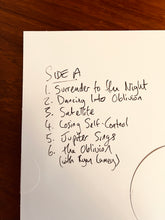 SIDE A
1. Surrender to the Night
2. Dancing Into Oblivion
3. Satellite
4. Losing Self-Control
5. Jupiter Sings
6. The Oblivion
(with Ryan